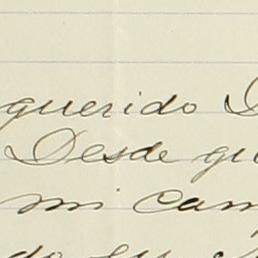 querido
Desde qu
mi cam
do su